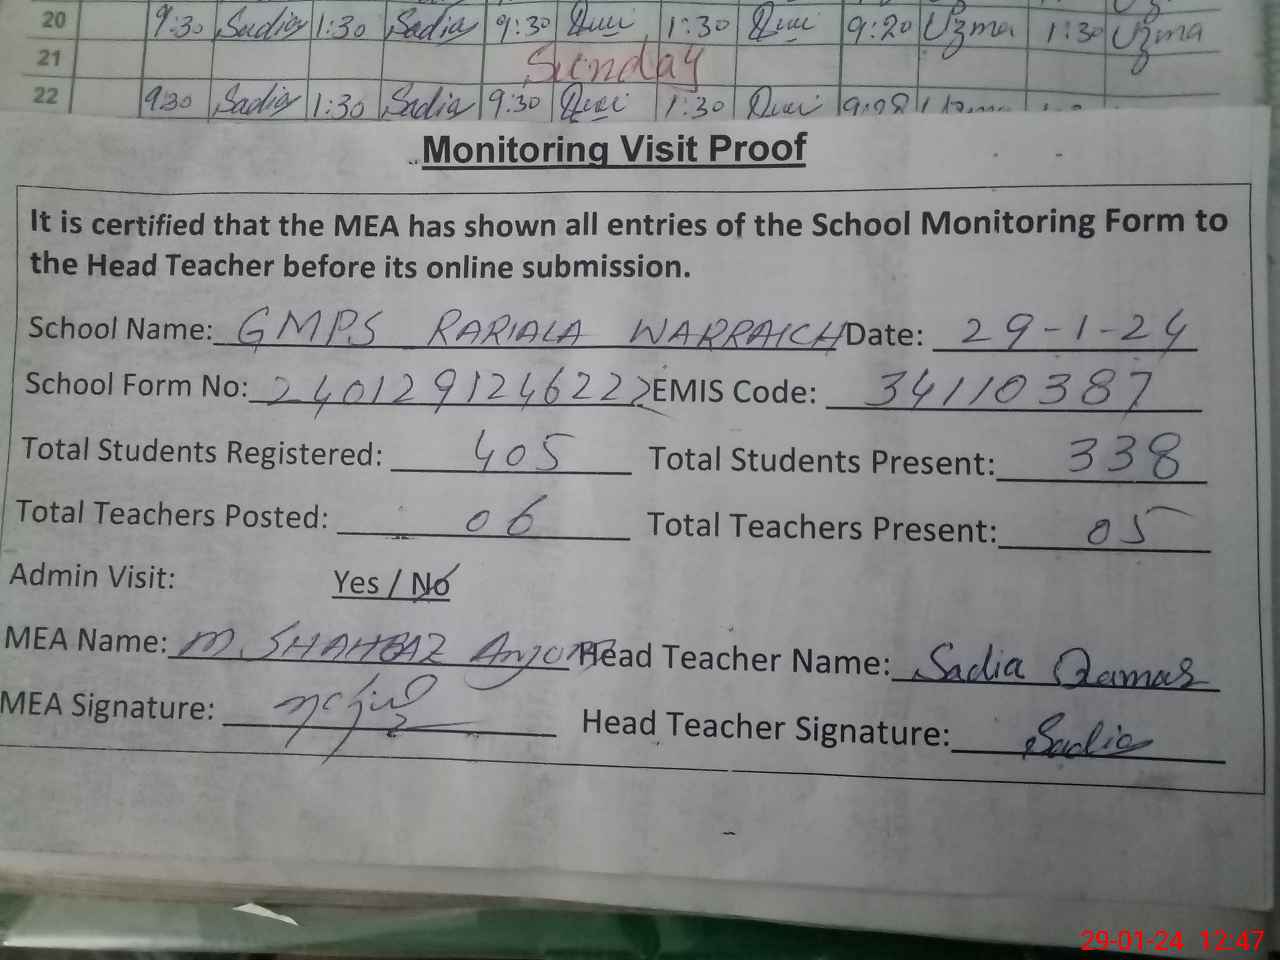 20 9:30 Sadia 1:30 Sadia 9:30 1:30 9:20 Uzma 1:30 Uzma
21 Sunday
22 9:30 Sadia 1:30 Sadia 9:30 1:30
Monitoring Visit Proof
It is certified that the MEA has shown all entries of the School Monitoring Form to
the Head Teacher before its online submission.
School Name: GMPS RARIALA WARRAICH Date: 29-1-24
School Form No: 2401291246222 EMIS Code: 34110387
Total Students Registered: 405 Total Students Present: 338
Total Teachers Posted: 06 Total Teachers Present: 05
Admin Visit: Yes / No
MEA Name: M. SHAHBAZ Anjom Head Teacher Name: Sadia Qamar
MEA Signature: Head Teacher Signature: Sadia
29-01-24 12:47